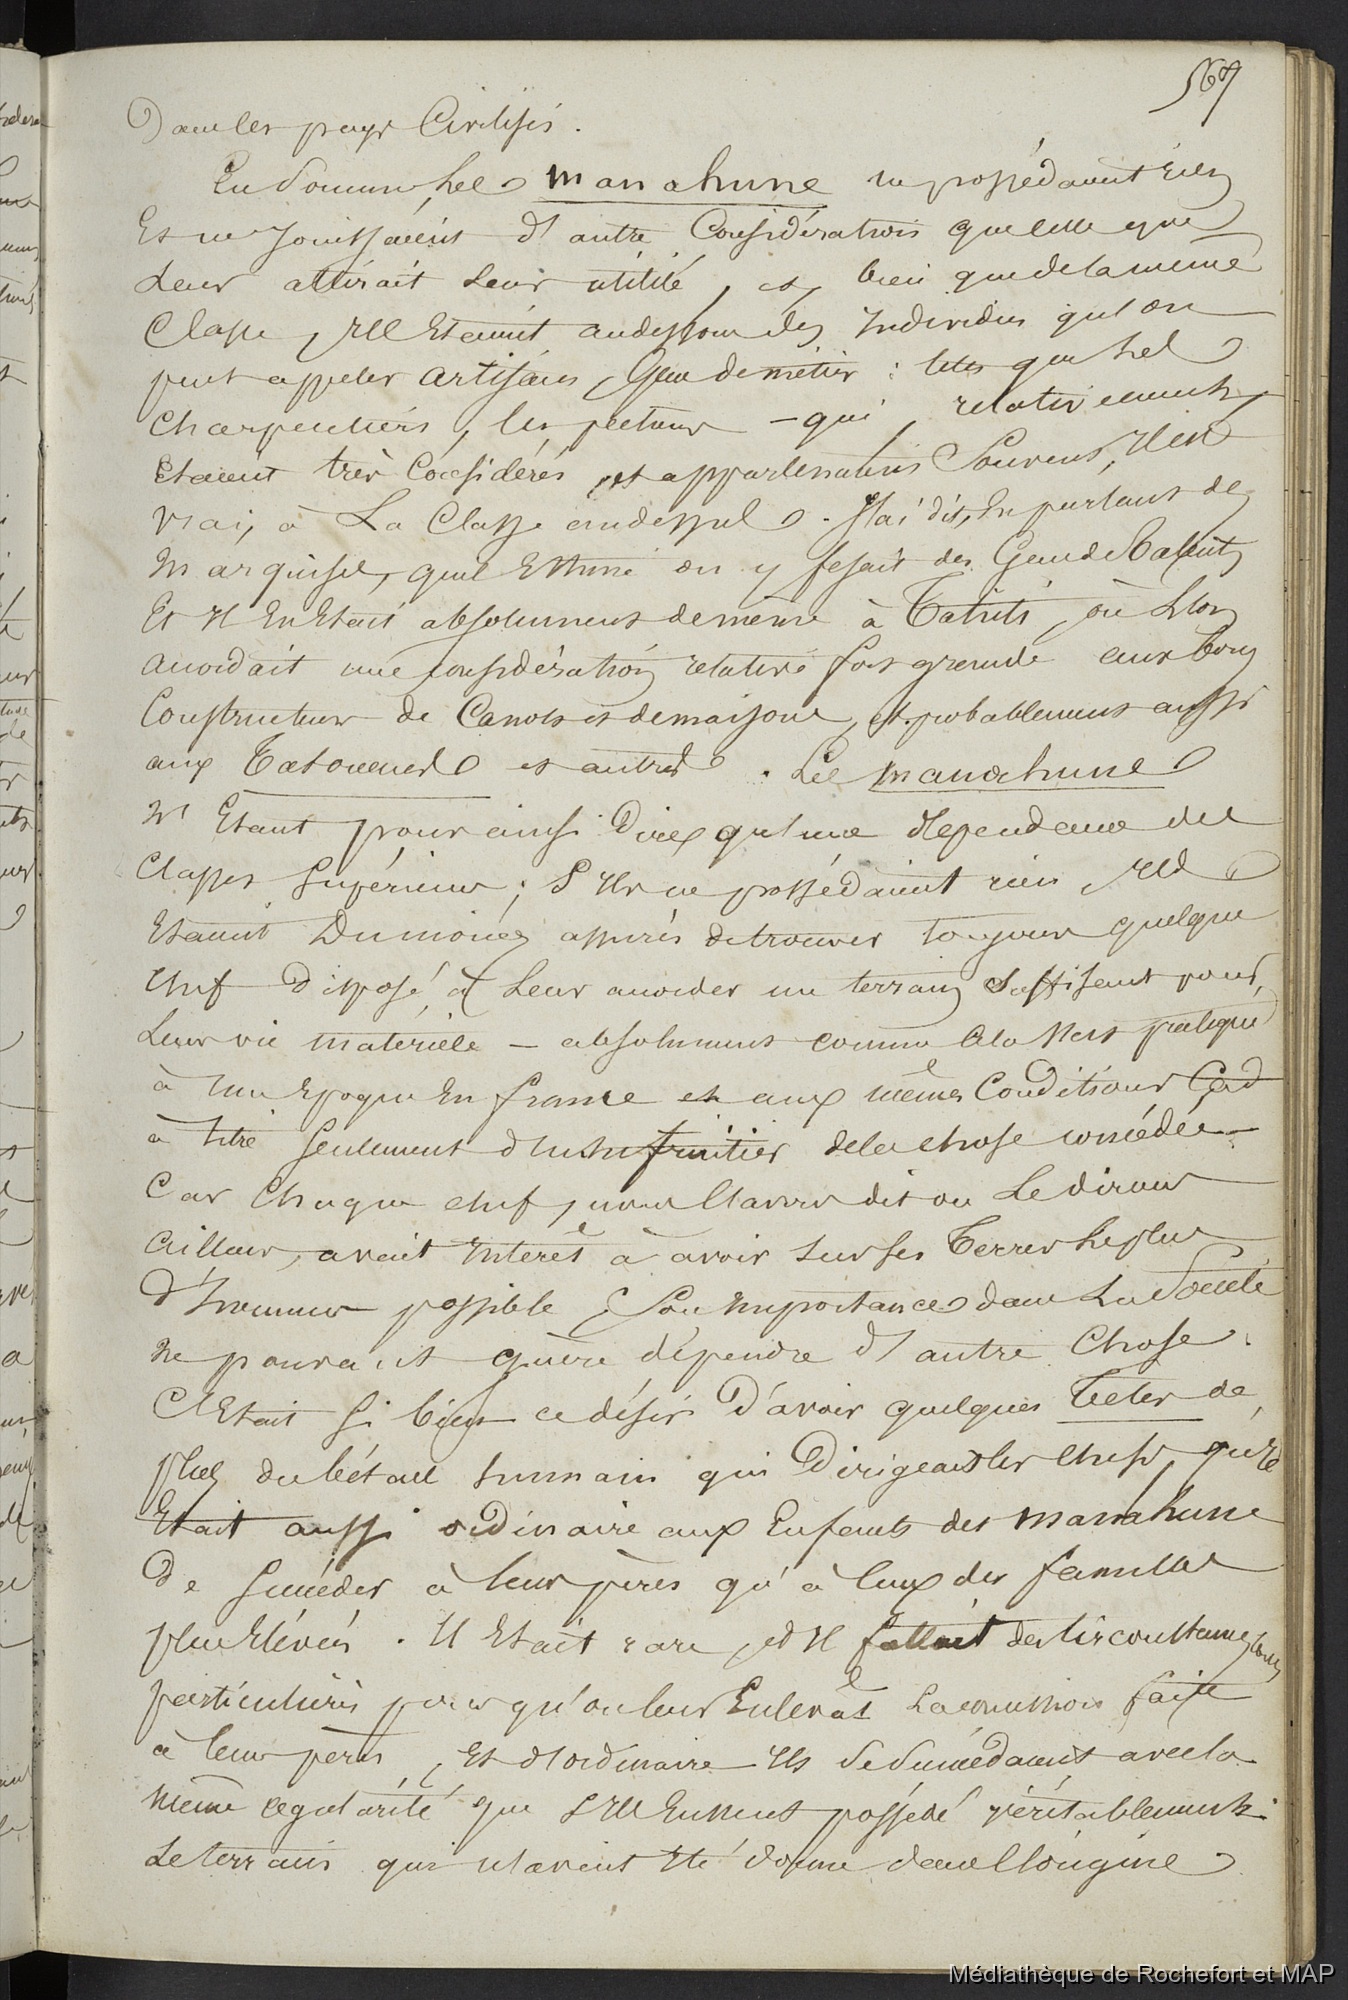 567
Dans les pays Civilisés.
En somme, les manahune ne possédaient rien
Et ne jouissaient d'autre Considération que celle que
Leur attirait Leur utilité, et, bien que de la meme
Classe, Ils Etaient audessous des Individus qu'on
peut appeler artisans, Gens de métier : tels que les
charpentiers, les pecheurs - qui, relativement,
Etaient très Considérés, et appartenaient Souvent, Il est
vrai, à La Classe audessus. J'ai dit, En parlant des
Marquises, quel Estime on y fesait des Gens de talent,
Et Il En Etait absolument de même à Tahiti, où L'on
accordait une considération relative fort grande aux bons
Constructeurs de Canots et de maisons, et probablement aussi
aux Tatoueurs et autres. Les manahune
N'Etant pour ainsi Dire qu'une dépendance des
Classes Supérieures ; S'Ils ne possédaient rien, Ils
Etaient Du moins assurés de trouver toujours quelque
chef disposé à Leur accorder un terrain Suffisant pour
Leur vie matérielle - absolument comme cela s'est pratiqué
à une Epoque En france et aux mêmes Conditions Càd
à titre Seulement d'usufruitier de la chose concédée
Car Chaque chef, nous l'avons dit ou Le dirons
ailleurs, avait Intérêt à avoir sur ses Terres le plus
d'hommes possible, Son Importance dans La Société
Ne pouvait guère dépendre d'autre Chose.
C'Etait si bien ce désir D'avoir quelques Tetes de
plus du bétail humain qui Dirigeait les chefs, qu'Il
Etait aussi ordinaire aux Enfants des manahune
De Succéder à leurs pères qu'à ceux des familles
plus Elevées. Il Etait rare, et Il fallait des circonstances bien
particulières pour qu'on leur Enlevât La concession faite
à leurs pères, Et d'ordinaire Ils se succédaient avec la
même régularité que S'Ils Eussent possédé véritablement
Le terrain qui n'avait Eté donné dans l'origine
Médiathèque de Rochefort et MAP